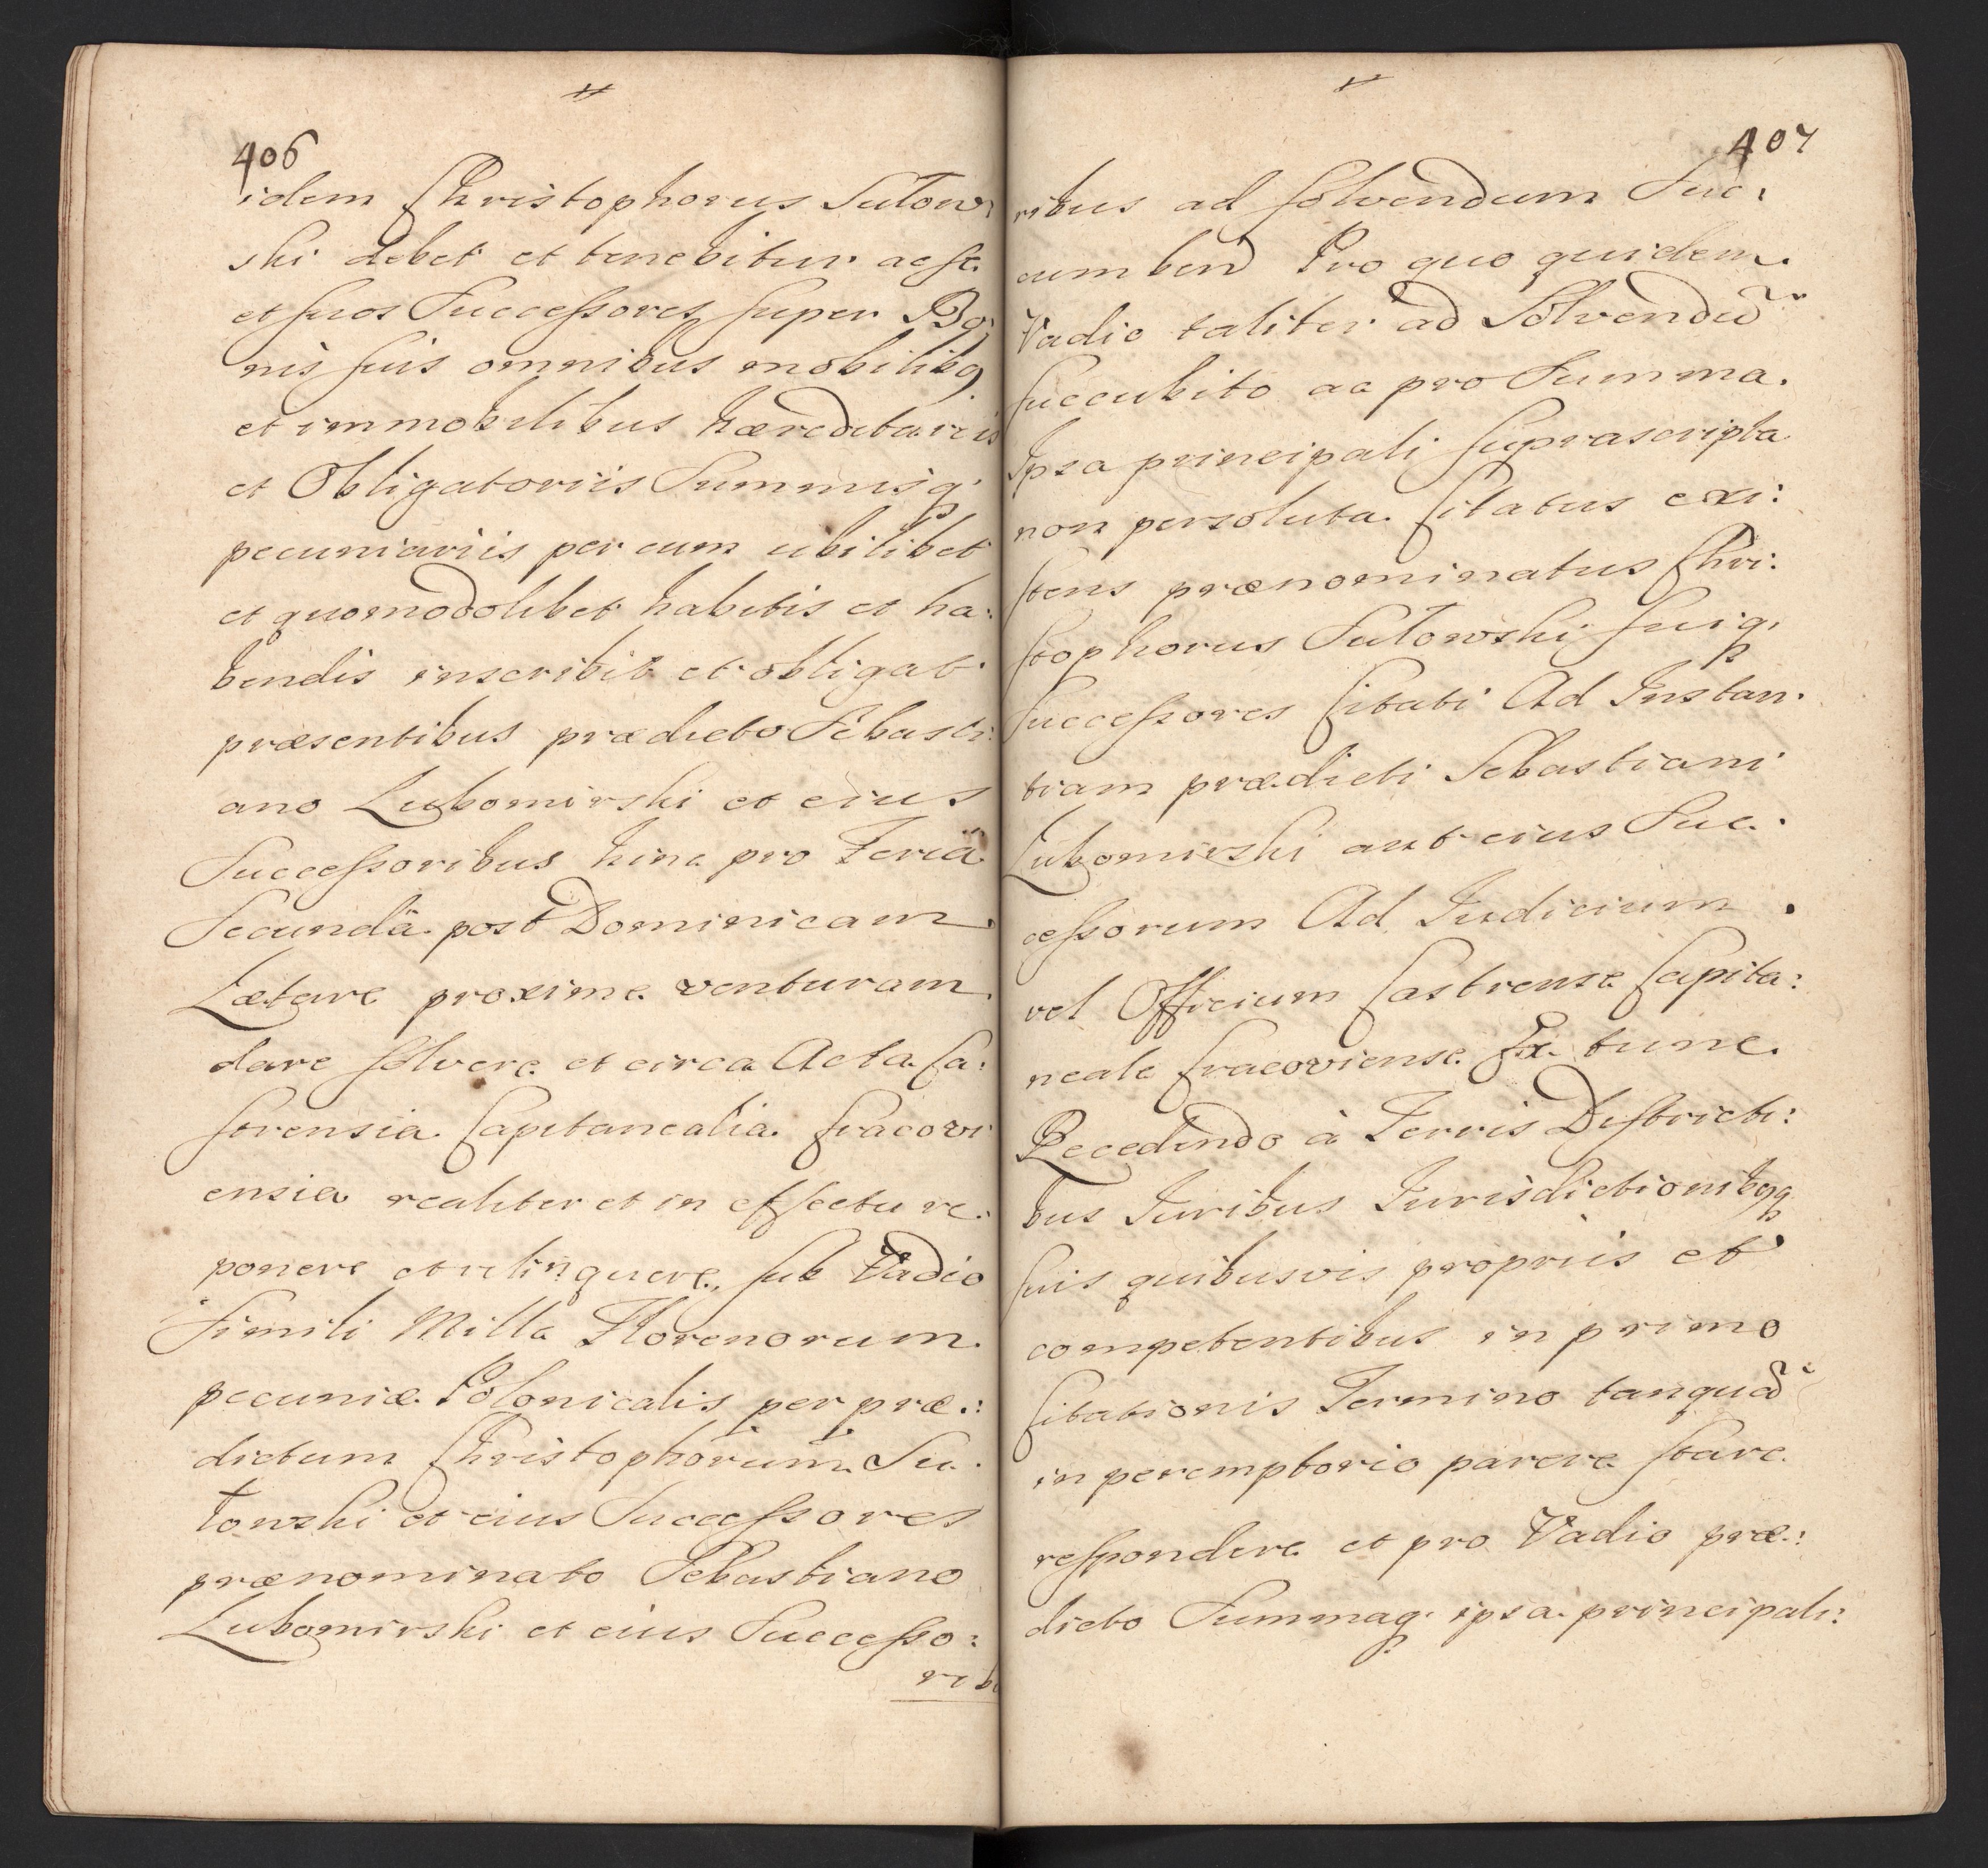 406
idem Christophorus Sułow:
ski debet et tenebitur ac se
et suos Successores super Bo:
nis suis omnibus mobilibq
et immobilibus hæreditariis
et Obligatoriis Summisq;
pecuniariis per eum ubilibet
et quomodolibet habitis et ha:
bendis inscribit et obligat
præsentibus prædicto Sebasti:
ano Lubomirski et eius
Successoribus hinc pro Feriä
Secundä post Dominicam
Lætare proxime venturam
dare solvere et circa Acta Ca:
strensia Capitanealia Cracovi
ensia realiter et in effectu re:
ponere et relinquere, sub Vadio
simili Mille Florenorum
pecuniæ Polonicalis per præ:
dictum Christophorum Su:
łowski et eius Successores
prænominato Sebastiano
Lubomirski et eius Successo:
ribu
407
ribus ad solvendum Suc:
cumben̄ Pro quo quidem
Vadio taliter ad Solvendū
succubito ac pro Summa
Ipsa principali suprascripta
non persoluta Citatus exi:
stens prænominatus Chri:
stophorus Sułowski suiq;
Successores Citati Ad Instan:
tiam prædicti Sebastiani
Lubomirski aut eius Suc:
cessorum Ad Iudicium
vel Officium Castrense Capita:
neale Cracoviense Ex tunc
Recedendo à Terris Districti:
bus Iuribus Iurisdictionibqq
suis quibusvis propriis et
competentibus in primo
Citationis Termino tanquā
in peremptorio parere stare
respondere et pro Vadio præ:
dicto Summaq; ipsa principali: